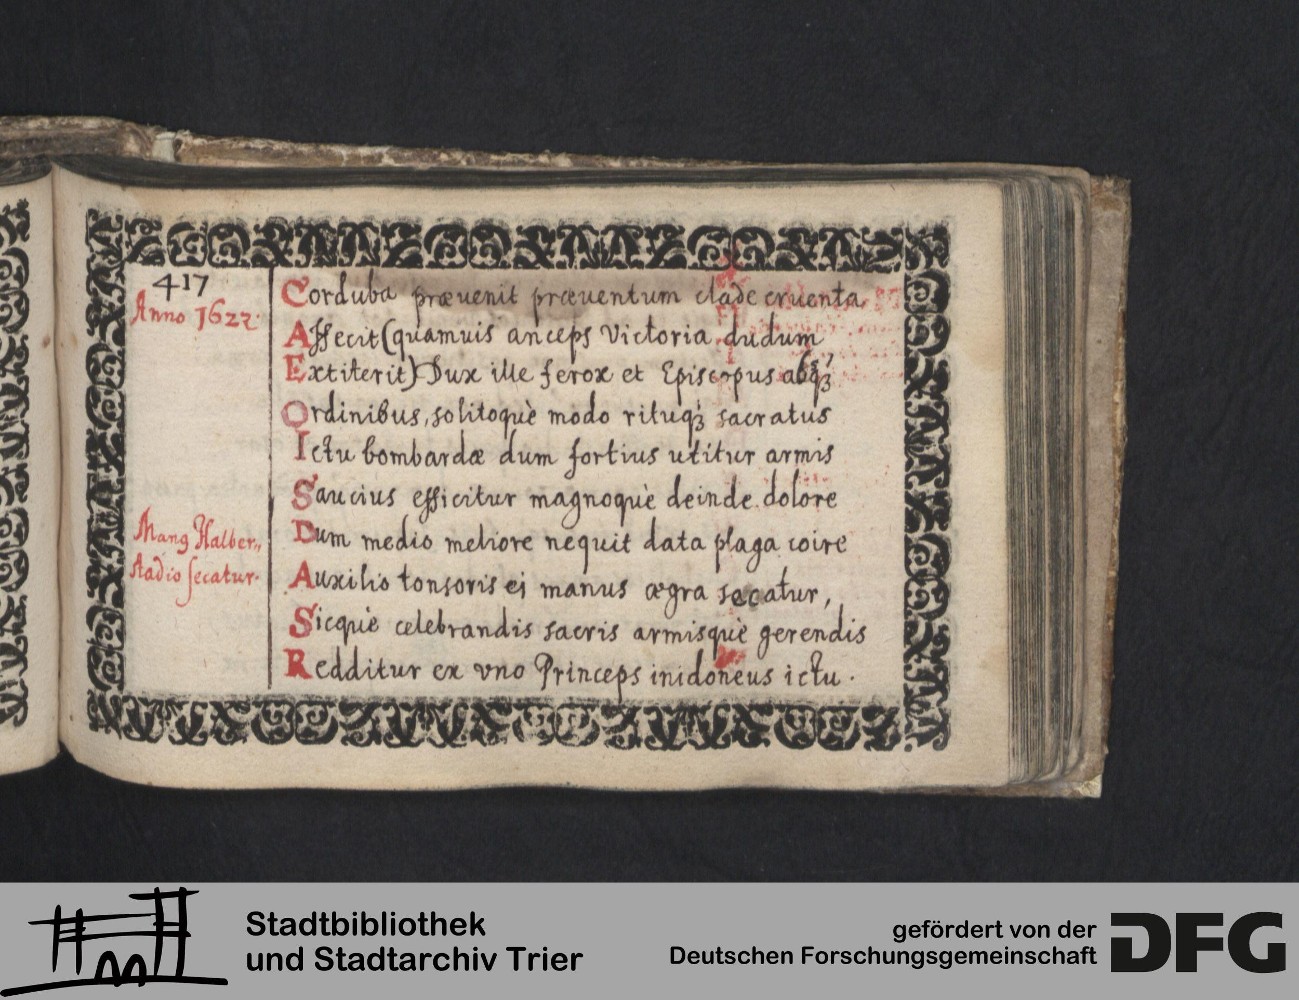 417
Anno 1622.
Corduba prævenit præventum clade cruenta
Affecit (quamuis anceps Victoria dudum
Extiterit) Dux ille ferox et Episcopus absq́ꝫ
Ordinibus, solitoquè modo rituqꝫ sacratus
Ictu bombardæ dum fortius utitur armis
Saucius efficitur magnoquè deinde dolore
Dum medio meliore nequit data plaga coire
Auxilio tonsoris ei manus ægra secatur,
Sicquè celebrandis sacris armisquè gerendis
Redditur ex vno Princeps inidoneus ictu.
Mang Halber„
stadio secatur.
Stadtbibliothek
und Stadtarchiv Trier
gefördert von der
Deutschen Forschungsgemeinschaft
DFG